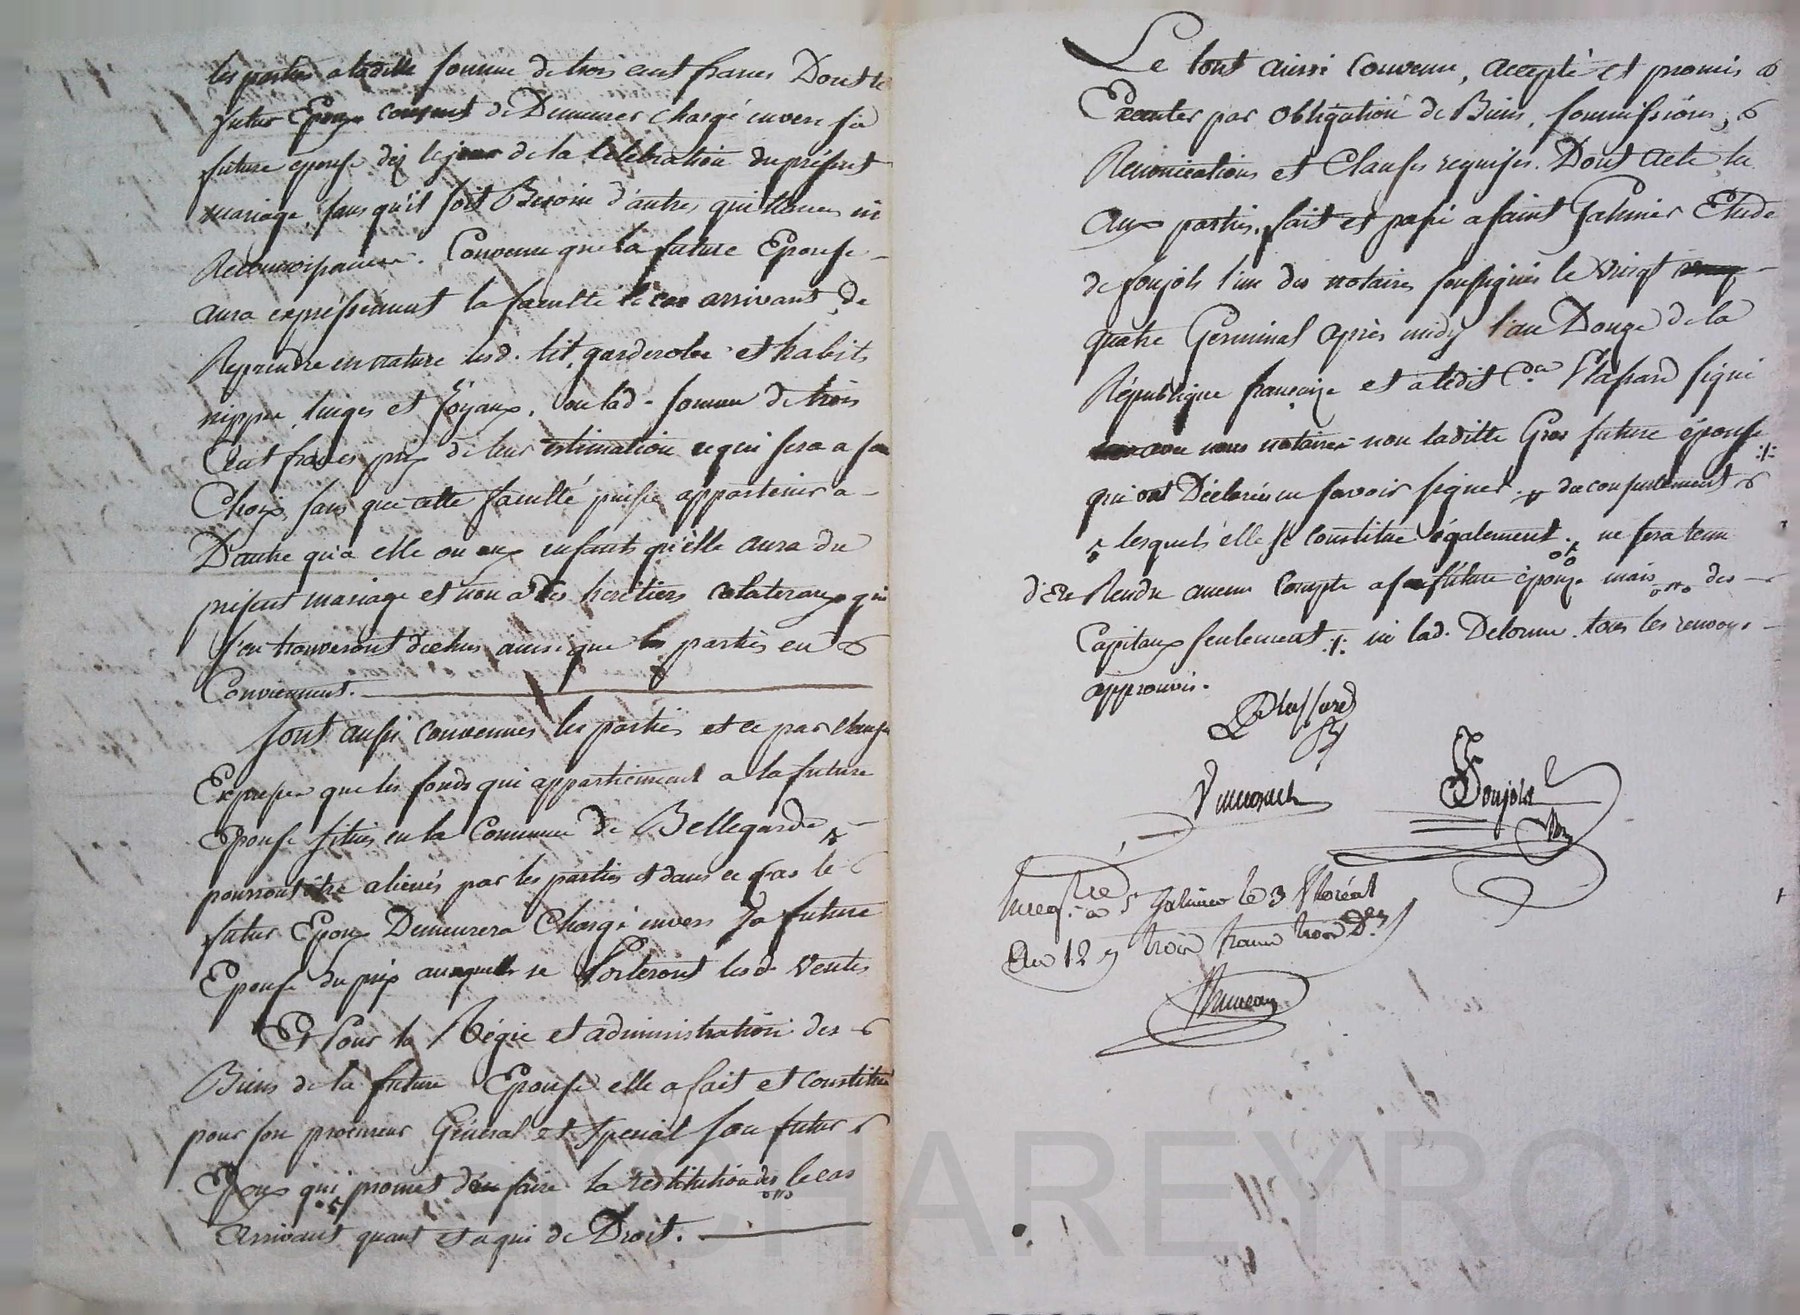 les parties a laditte somme de trois cent francs Dont le
futur Epoux consent de Demeurer chargé envers sa
future epouse dez le jour de la Célébration du présent
mariage, sans qu'il soit Besoin d'autres quittances ni
Reconnoissances. Convenu que la future Epouse
aura expréssément la faculté le cas arrivant de
Reprendre en nature lesd. lit, garderobe et habits
nippes linges et Joyaux, ou lad. somme de trois
Cent francs prix de leur estimation ce qui sera a son
Choix, sans que cette faculté puisse appartenir a
D'autre qu'a elle ou aux enfants qu'elle aura du
présent mariage et non a des heritiers colateraux qui
s'en trouveront dechus ainsi que les parties en
Conviennent.
sont aussi convenues les parties et ce par clause
Expresse que les fonds qui appartiennent a la future
Epouse situés en la Commune de Bellegarde
pourront être alienés par les parties et dans ce cas le
futur Epoux Demeurera Chargé envers Sa future
Epouse du prix auxquels se Porteront lesd. Ventes
Et Pour la Régie et administration des
Biens de la future Epouse elle a fait et constitué
pour son procureur Général et special son futur
Epoux qui promet d'en faire la restitution des le cas
Arrivant quant et a qui de Droit.
Le tout ainsi Convenu, accepté et promis
Executer par obligation de Biens, soumissions,
Renonciations et Clauses requises. Dont acte lu
Aux parties, fait et passé a Saint Galmier Etude
de Soujols l'un des notaires soussignés le vingt
quatre Germinal après midy l'an Douze de la
République françaize et a ledit Cen Plassard signé
avec nous notaires non laditte Gros future épouse :/:
qui ont Déclaré ne savoir signer. du consentement
lesquels elle se constitue également. ne sera tenu
d'En Rendre aucun Compte a sa future épouze mais des
Capitaux seulement :/: ni lad. Delorme. tous les renvoys
approuvés.
Plassard
Soujols
Enregtré a St Galmier le 3 floréal
An 12 trois francs trois